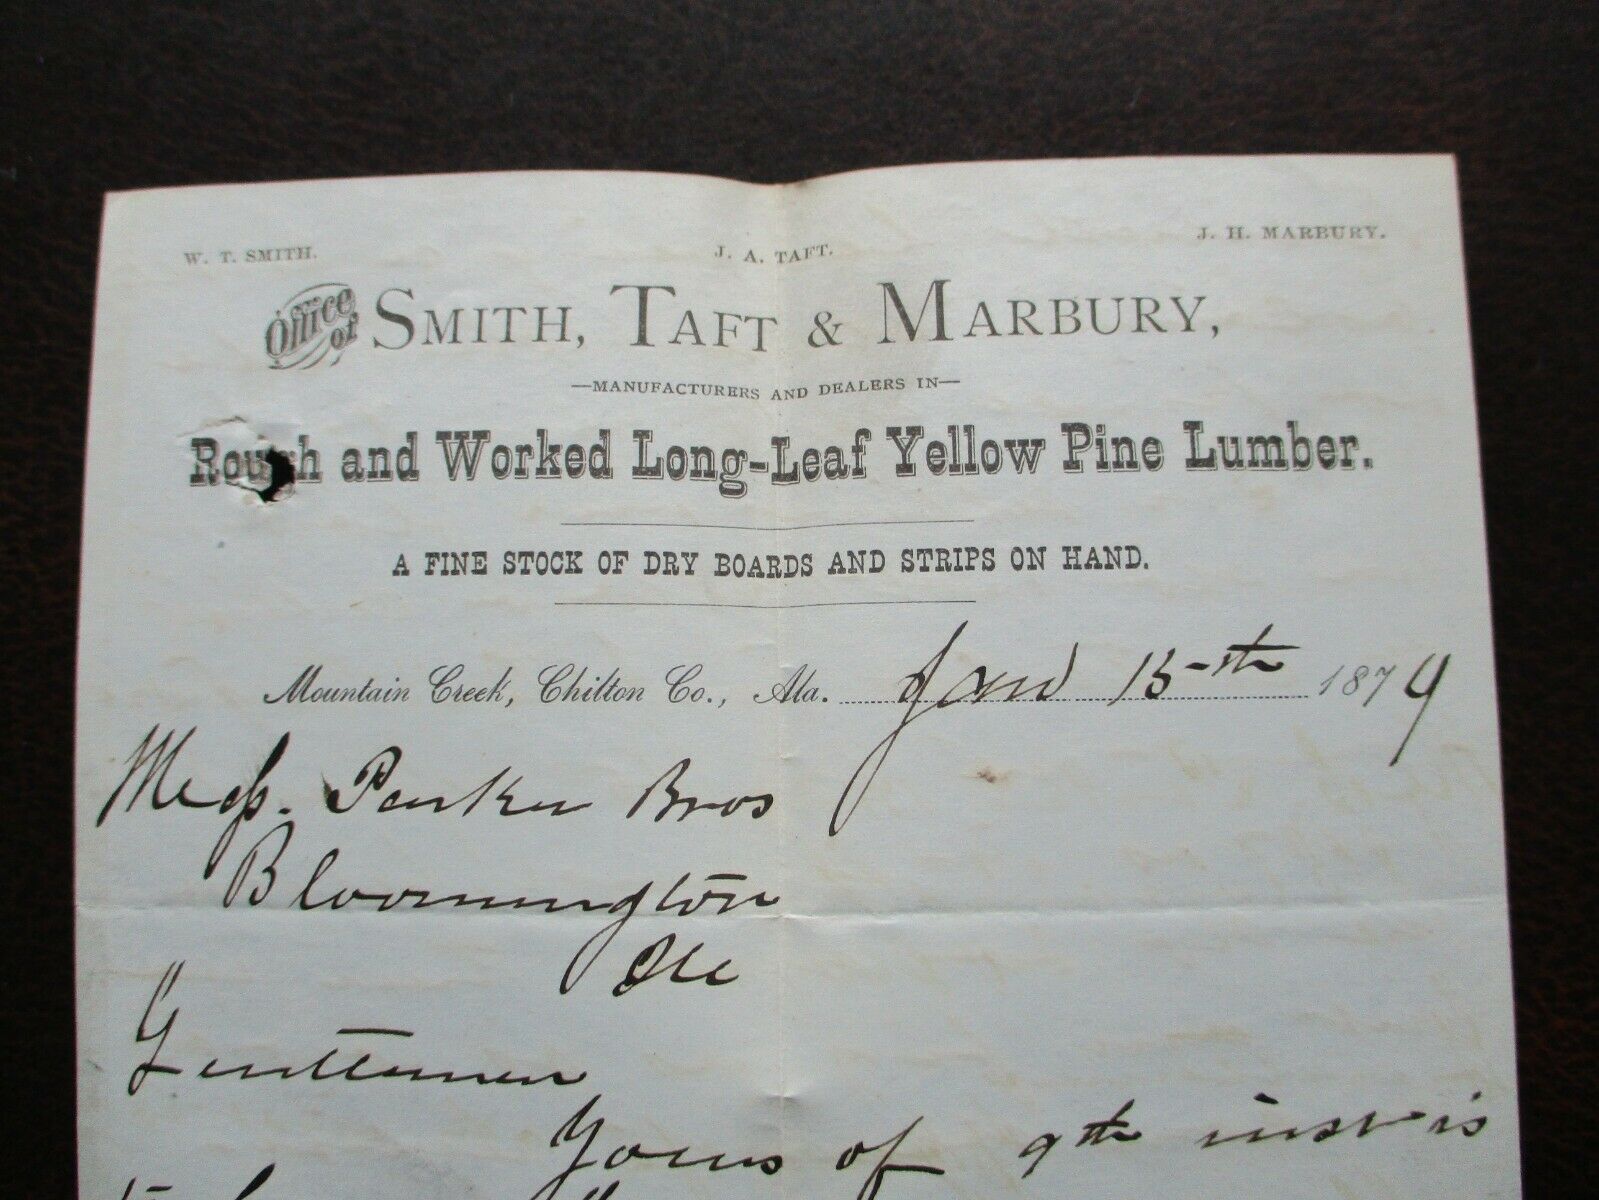 W. T. SMITH. J. A. TAFT. J. H. MARBURY.
Office of SMITH, TAFT & MARBURY,
—MANUFACTURERS AND DEALERS IN—
Rough and Worked Long-Leaf Yellow Pine Lumber.
A FINE STOCK OF DRY BOARDS AND STRIPS ON HAND.
Mountain Creek, Chilton Co., Ala. Jany 15th 1879
Mess. Parker Bros
Bloomington
Ills
Gentlemen
Yours of 9th inst is